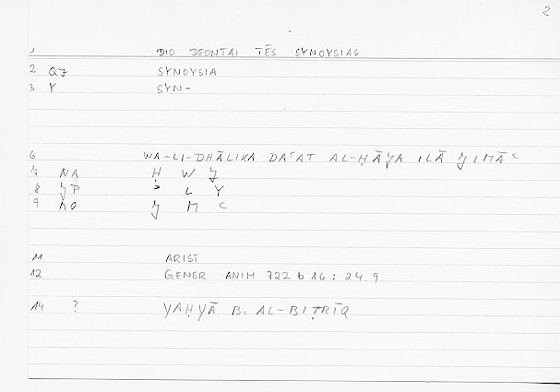 2
1 DIO DEONTAI TĒS SYNOYSIAS
2 QJ SYNOYSIA
3 Y SYN-
6 WA-LI-DHĀLIKA DAʿAT AL-ḤĀJA ILĀ JIMĀʿ
7 NA Ḥ W J
8 JP ʾ L Y
9 J M ʿ
11 ARIST
12 GENER ANIM 722 b 16 : 24.9
14 ? YAḤYĀ B. AL-BIṬRĪQ